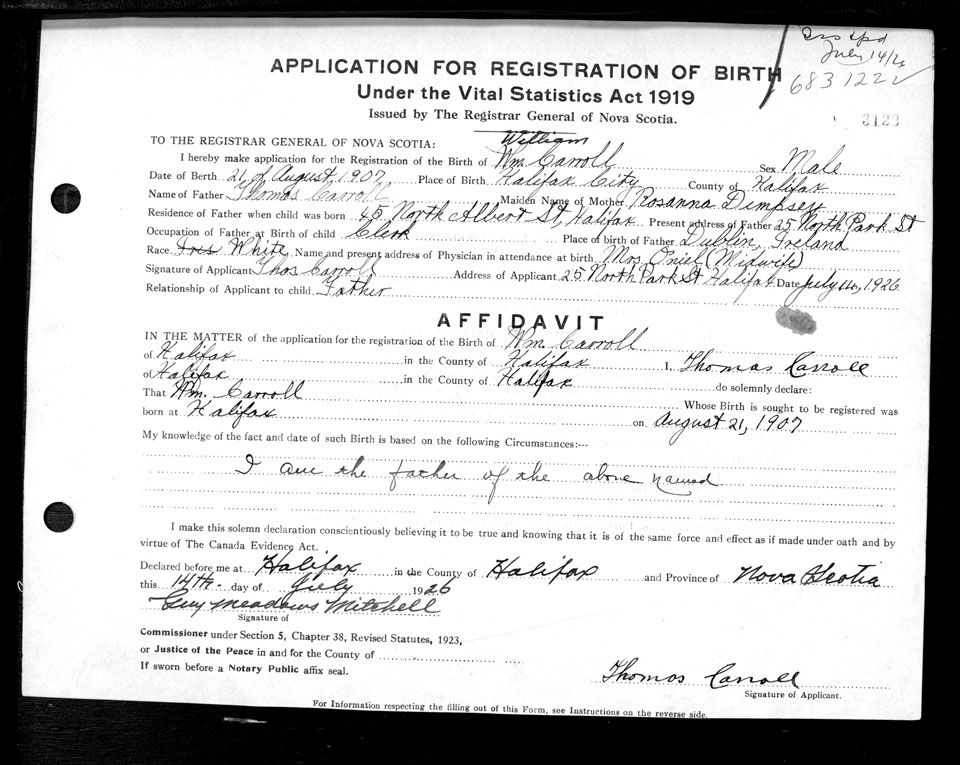 July 14/26
683 1222
3123
APPLICATION FOR REGISTRATION OF BIRTH
Under the Vital Statistics Act 1919
Issued by The Registrar General of Nova Scotia.
TO THE REGISTRAR GENERAL OF NOVA SCOTIA: William
I hereby make application for the Registration of the Birth of Wm. Carroll Sex Male
Date of Birth 21 of August 1907 Place of Birth Halifax City County of Halifax
Name of Father Thomas Carroll Maiden Name of Mother Rosanna Dimpsey
Residence of Father when child was born 45 North Albert St, Halifax Present address of Father 25 North Park St
Occupation of Father at Birth of child Clerk Place of birth of Father Dublin, Ireland
Race Ires White Name and present address of Physician in attendance at birth Mrs Oniel (Midwife)
Signature of Applicant Thos Carroll Address of Applicant 25 North Park St Halifax Date July 14, 1926
Relationship of Applicant to child Father
AFFIDAVIT
IN THE MATTER of the application for the registration of the Birth of Wm. Carroll
of Halifax in the County of Halifax I, Thomas Carroll
of Halifax in the County of Halifax do solemnly declare:
That Wm. Carroll Whose Birth is sought to be registered was
born at Halifax on August 21, 1907
My knowledge of the fact and date of such Birth is based on the following Circumstances:--
I am the father of the above named
I make this solemn declaration conscientiously believing it to be true and knowing that it is of the same force and effect as if made under oath and by
virtue of The Canada Evidence Act.
Declared before me at Halifax in the County of Halifax and Province of Nova Scotia
this 14th day of July 1926
Guy Meadows Mitchell
Signature of
Commissioner under Section 5, Chapter 38, Revised Statutes, 1923,
or Justice of the Peace in and for the County of
If sworn before a Notary Public affix seal.
Thomas Carroll
Signature of Applicant.
For Information respecting the filling out of this Form, see Instructions on the reverse side.